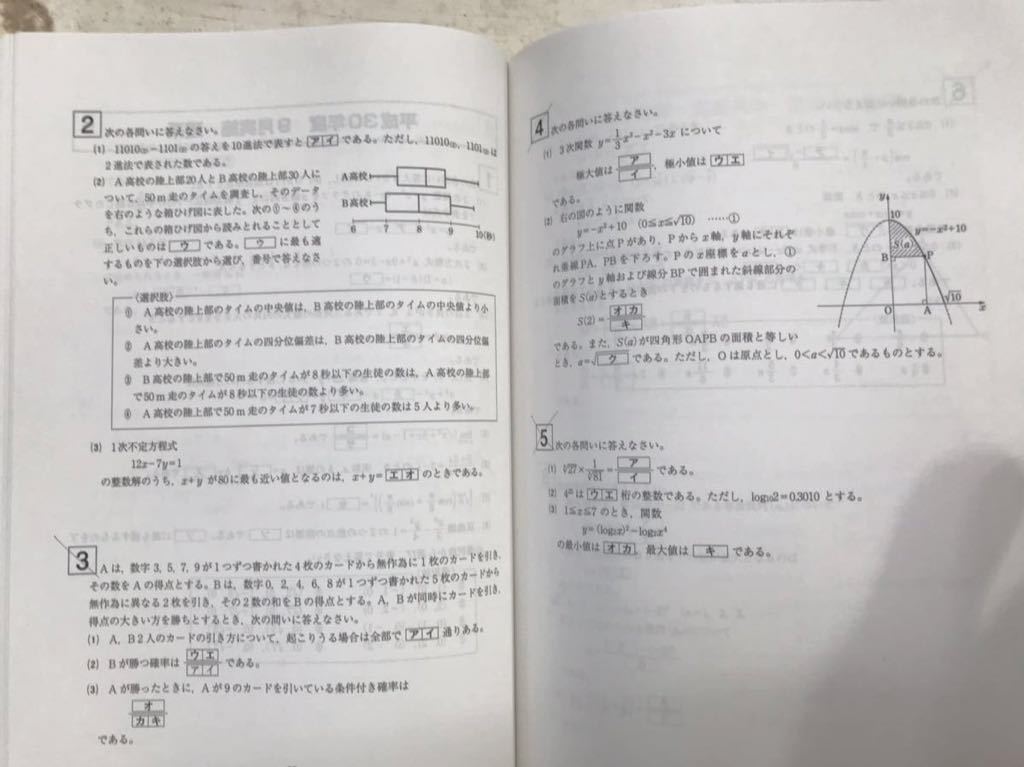 2 次の各問いに答えなさい。
(1) 11010₍₂₎−1101₍₂₎ の答えを10進法で表すと アイ である。ただし，11010₍₂₎, 1101₍₂₎ は
2進法で表された数である。
(2) A高校の陸上部20人とB高校の陸上部30人に
ついて，50m走のタイムを調査し，そのデータ
を右のような箱ひげ図に表した。次の①〜④のう
ち，これらの箱ひげ図から読みとれることとして
正しいものは ウ である。 ウ に最も適
するものを下の選択肢から選び，番号で答えなさ
い。
A高校
B高校
6 7 8 9 10(秒)
〈選択肢〉
① A高校の陸上部のタイムの中央値は，B高校の陸上部のタイムの中央値より小
さい。
② A高校の陸上部のタイムの四分位偏差は，B高校の陸上部のタイムの四分位偏
差より大きい。
③ B高校の陸上部で50m走のタイムが8秒以下の生徒の数は，A高校の陸上部
で50m走のタイムが8秒以下の生徒の数より多い。
④ A高校の陸上部で50m走のタイムが7秒以下の生徒の数は5人より多い。
(3) 1次不定方程式
12x−7y=1
の整数解のうち，x+y が80に最も近い値となるのは，x+y= エオ のときである。
3 Aは，数字3, 5, 7, 9が1つずつ書かれた4枚のカードから無作為に1枚のカードを引き，
その数をAの得点とする。Bは，数字0, 2, 4, 6, 8が1つずつ書かれた5枚のカードから
無作為に異なる2枚を引き，その2数の和をBの得点とする。A，Bが同時にカードを引き，
得点の大きい方を勝ちとするとき，次の問いに答えなさい。
(1) A，B2人のカードの引き方について，起こりうる場合は全部で アイ 通りある。
(2) Bが勝つ確率は ウエ/アイ である。
(3) Aが勝ったときに，Aが9のカードを引いている条件付き確率は
オ/カキ
である。
4 次の各問いに答えなさい。
(1) 3次関数 y=1/3x³−x²−3x について
極大値は ア/イ ，極小値は ウエ
である。
(2) 右の図のように関数
y=−x²+10 (0≦x≦√10) ……①
のグラフ上に点Pがあり，Pからx軸，y軸にそれぞ
れ垂線PA，PBを下ろす。Pのx座標をaとし，①
のグラフとy軸および線分BPで囲まれた斜線部分の
面積をS(a)とするとき
S(2)= オカ/キ
である。また，S(a)が四角形OAPBの面積と等しい
とき，a=√ク である。ただし，Oは原点とし，0<a<√10 であるものとする。
y
10
y=−x²+10
S(a)
B
P
O
A
√10
x
5 次の各問いに答えなさい。
(1) ∜27× 1/∛81 = ア/イ である。
(2) は ウエ 桁の整数である。ただし，log₁₀2=0.3010 とする。
(3) 1≦x≦7 のとき，関数
y=(log₂x)²−log₂x⁴
の最小値は オカ ，最大値は キ である。